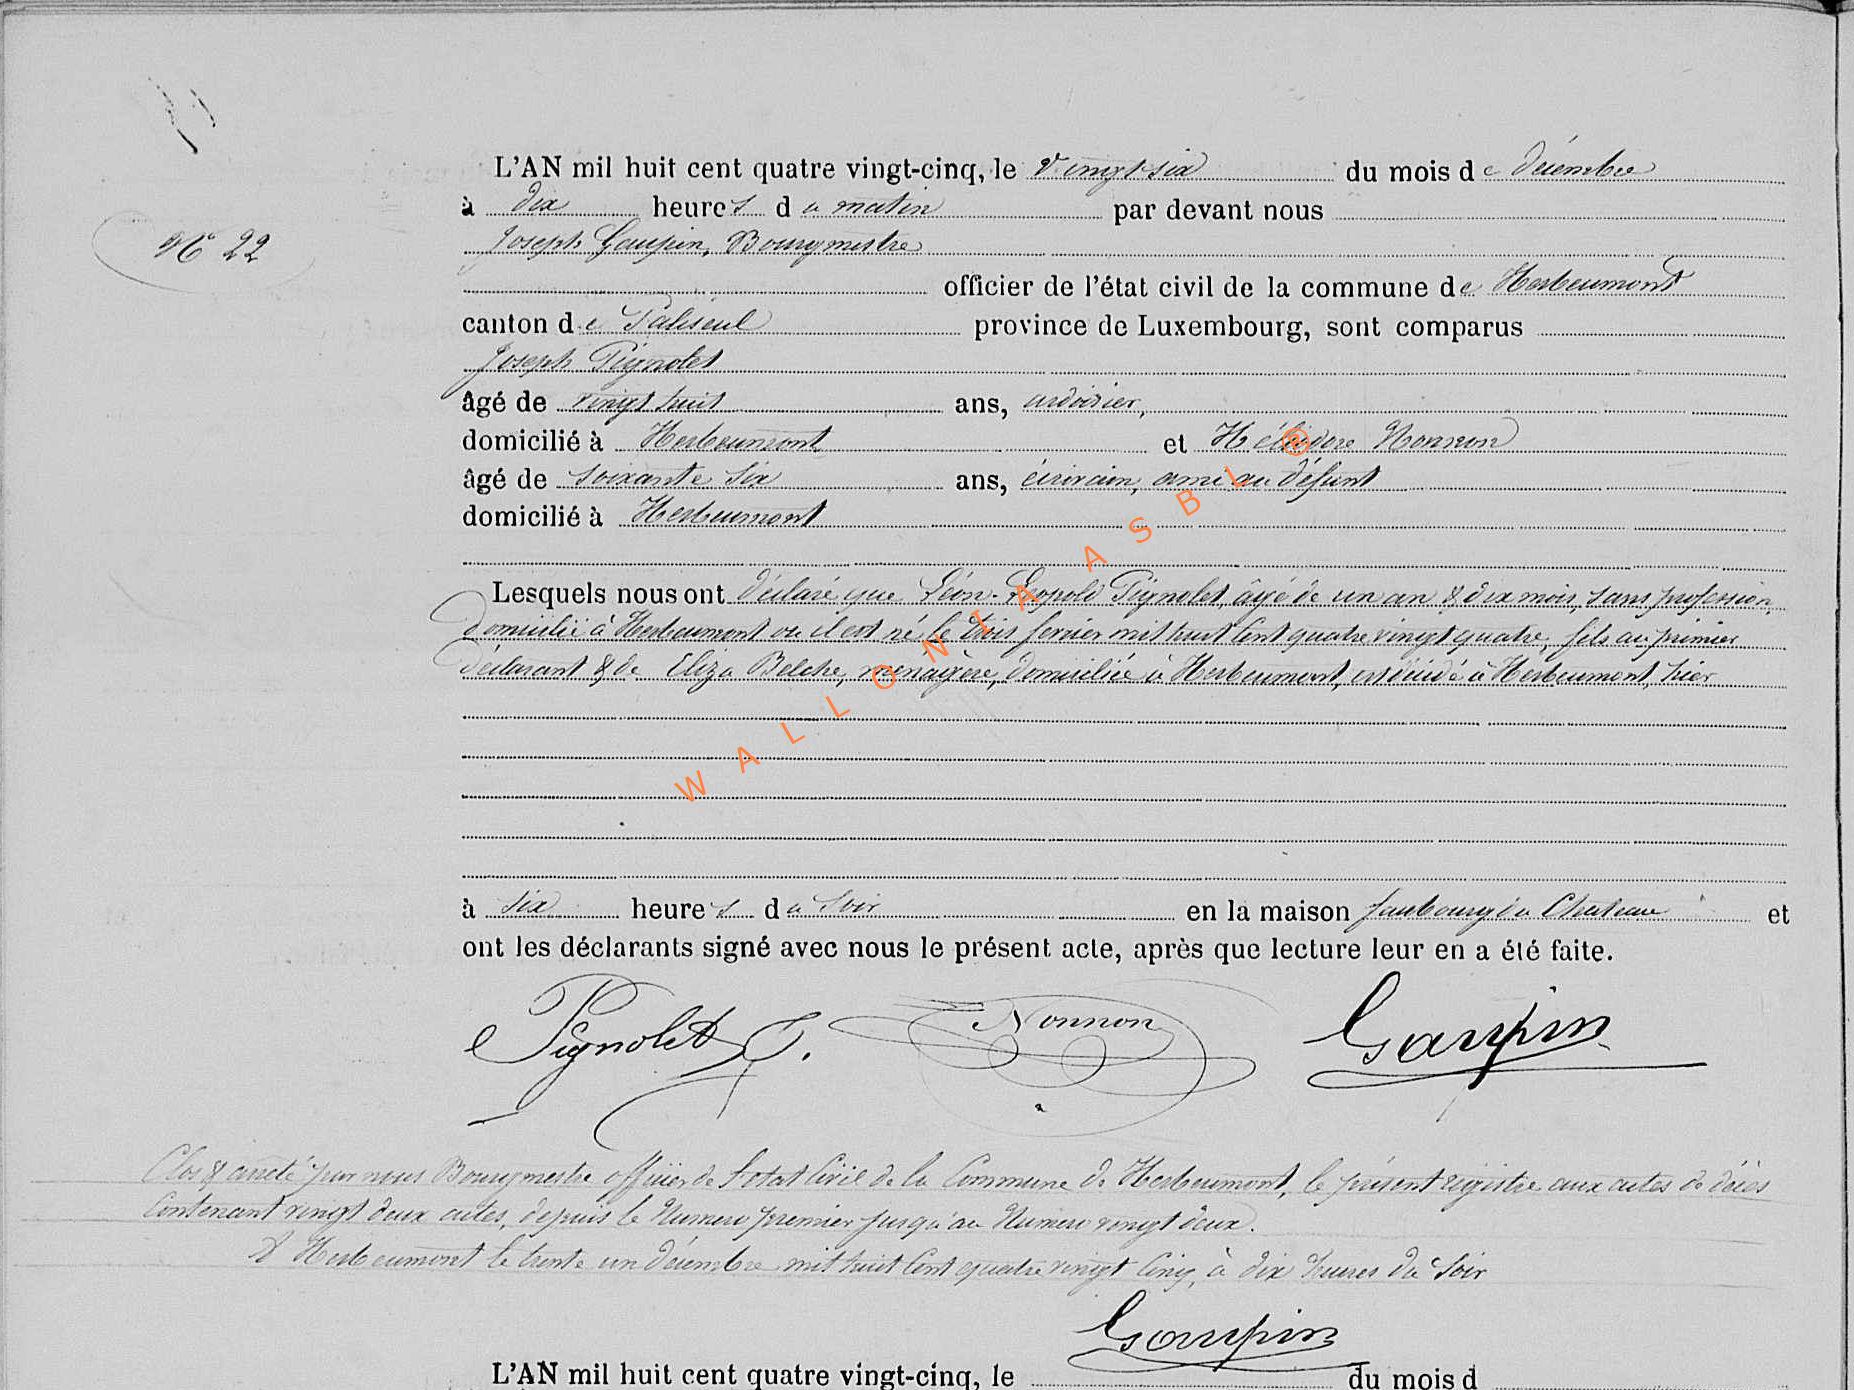 L'AN mil huit cent quatre vingt-cinq, le vingt-six du mois de décembre
à dix heures du matin par devant nous
Joseph Gaupin, Bourgmestre
N° 22
officier de l'état civil de la commune de Herbeumont
canton de Paliseul province de Luxembourg, sont comparus
Joseph Pignolet
âgé de vingt huit ans, ardoisier,
domicilié à Herbeumont et Héliodore Nonnon
âgé de soixante six ans, écrivain, ami au défunt
domicilié à Herbeumont
Lesquels nous ont déclaré que Léon-Léopold Pignolet, âgé de un an & dix mois, sans profession,
domicilié à Herbeumont où il est né le trois février mil huit cent quatre vingt quatre, fils au premier
déclarant & de Eliza Belche, ménagère, domiciliée à Herbeumont, est décédé à Herbeumont, hier
à six heures du soir en la maison faubourg du Chateau et
ont les déclarants signé avec nous le présent acte, après que lecture leur en a été faite.
Pignolet J. Nonnon Gaupin
Clos & arrêté par nous Bourgmestre officier de l'état civil de la Commune de Herbeumont, le présent régistre aux actes de décès
Contenant vingt deux actes, depuis le Numéro premier jusqu'au Numéro vingt deux.
A Herbeumont le trente un décembre mil huit cent quatre vingt cinq, à dix heures du soir
Gaupin
L'AN mil huit cent quatre vingt-cinq, le du mois d
WALLONIA ASBL ®